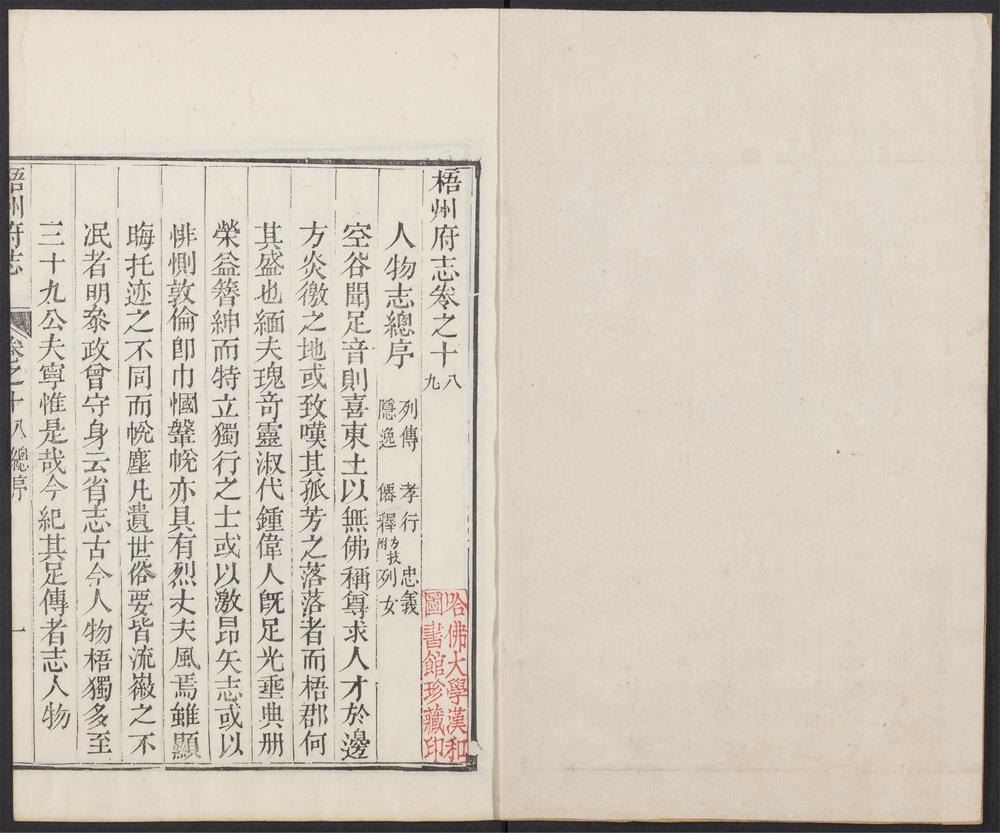 梧州府志卷之十八九
人物志總序 列傳 孝行 忠義 隱逸 僊釋方技附 列女
空谷聞足音則喜東土以無佛稱尊求人才於邊
方炎徼之地或致嘆其孤芳之落落者而梧郡何
其盛也緬夫瑰竒靈淑代鍾偉人旣足光垂典册
榮益簪紳而特立獨行之士或以激昂矢志或以
悱惻敦倫卽巾幗鞶帨亦具有烈丈夫風焉雖顯
晦托迹之不同而帨塵凡遺世俗要皆流徽之不
泯者明叅政曾守身云省志古今人物梧獨多至
三十九公夫寧惟是哉今紀其足傳者志人物
梧州府志 卷之十八總序 一
哈佛大學漢和圖書館珍藏印